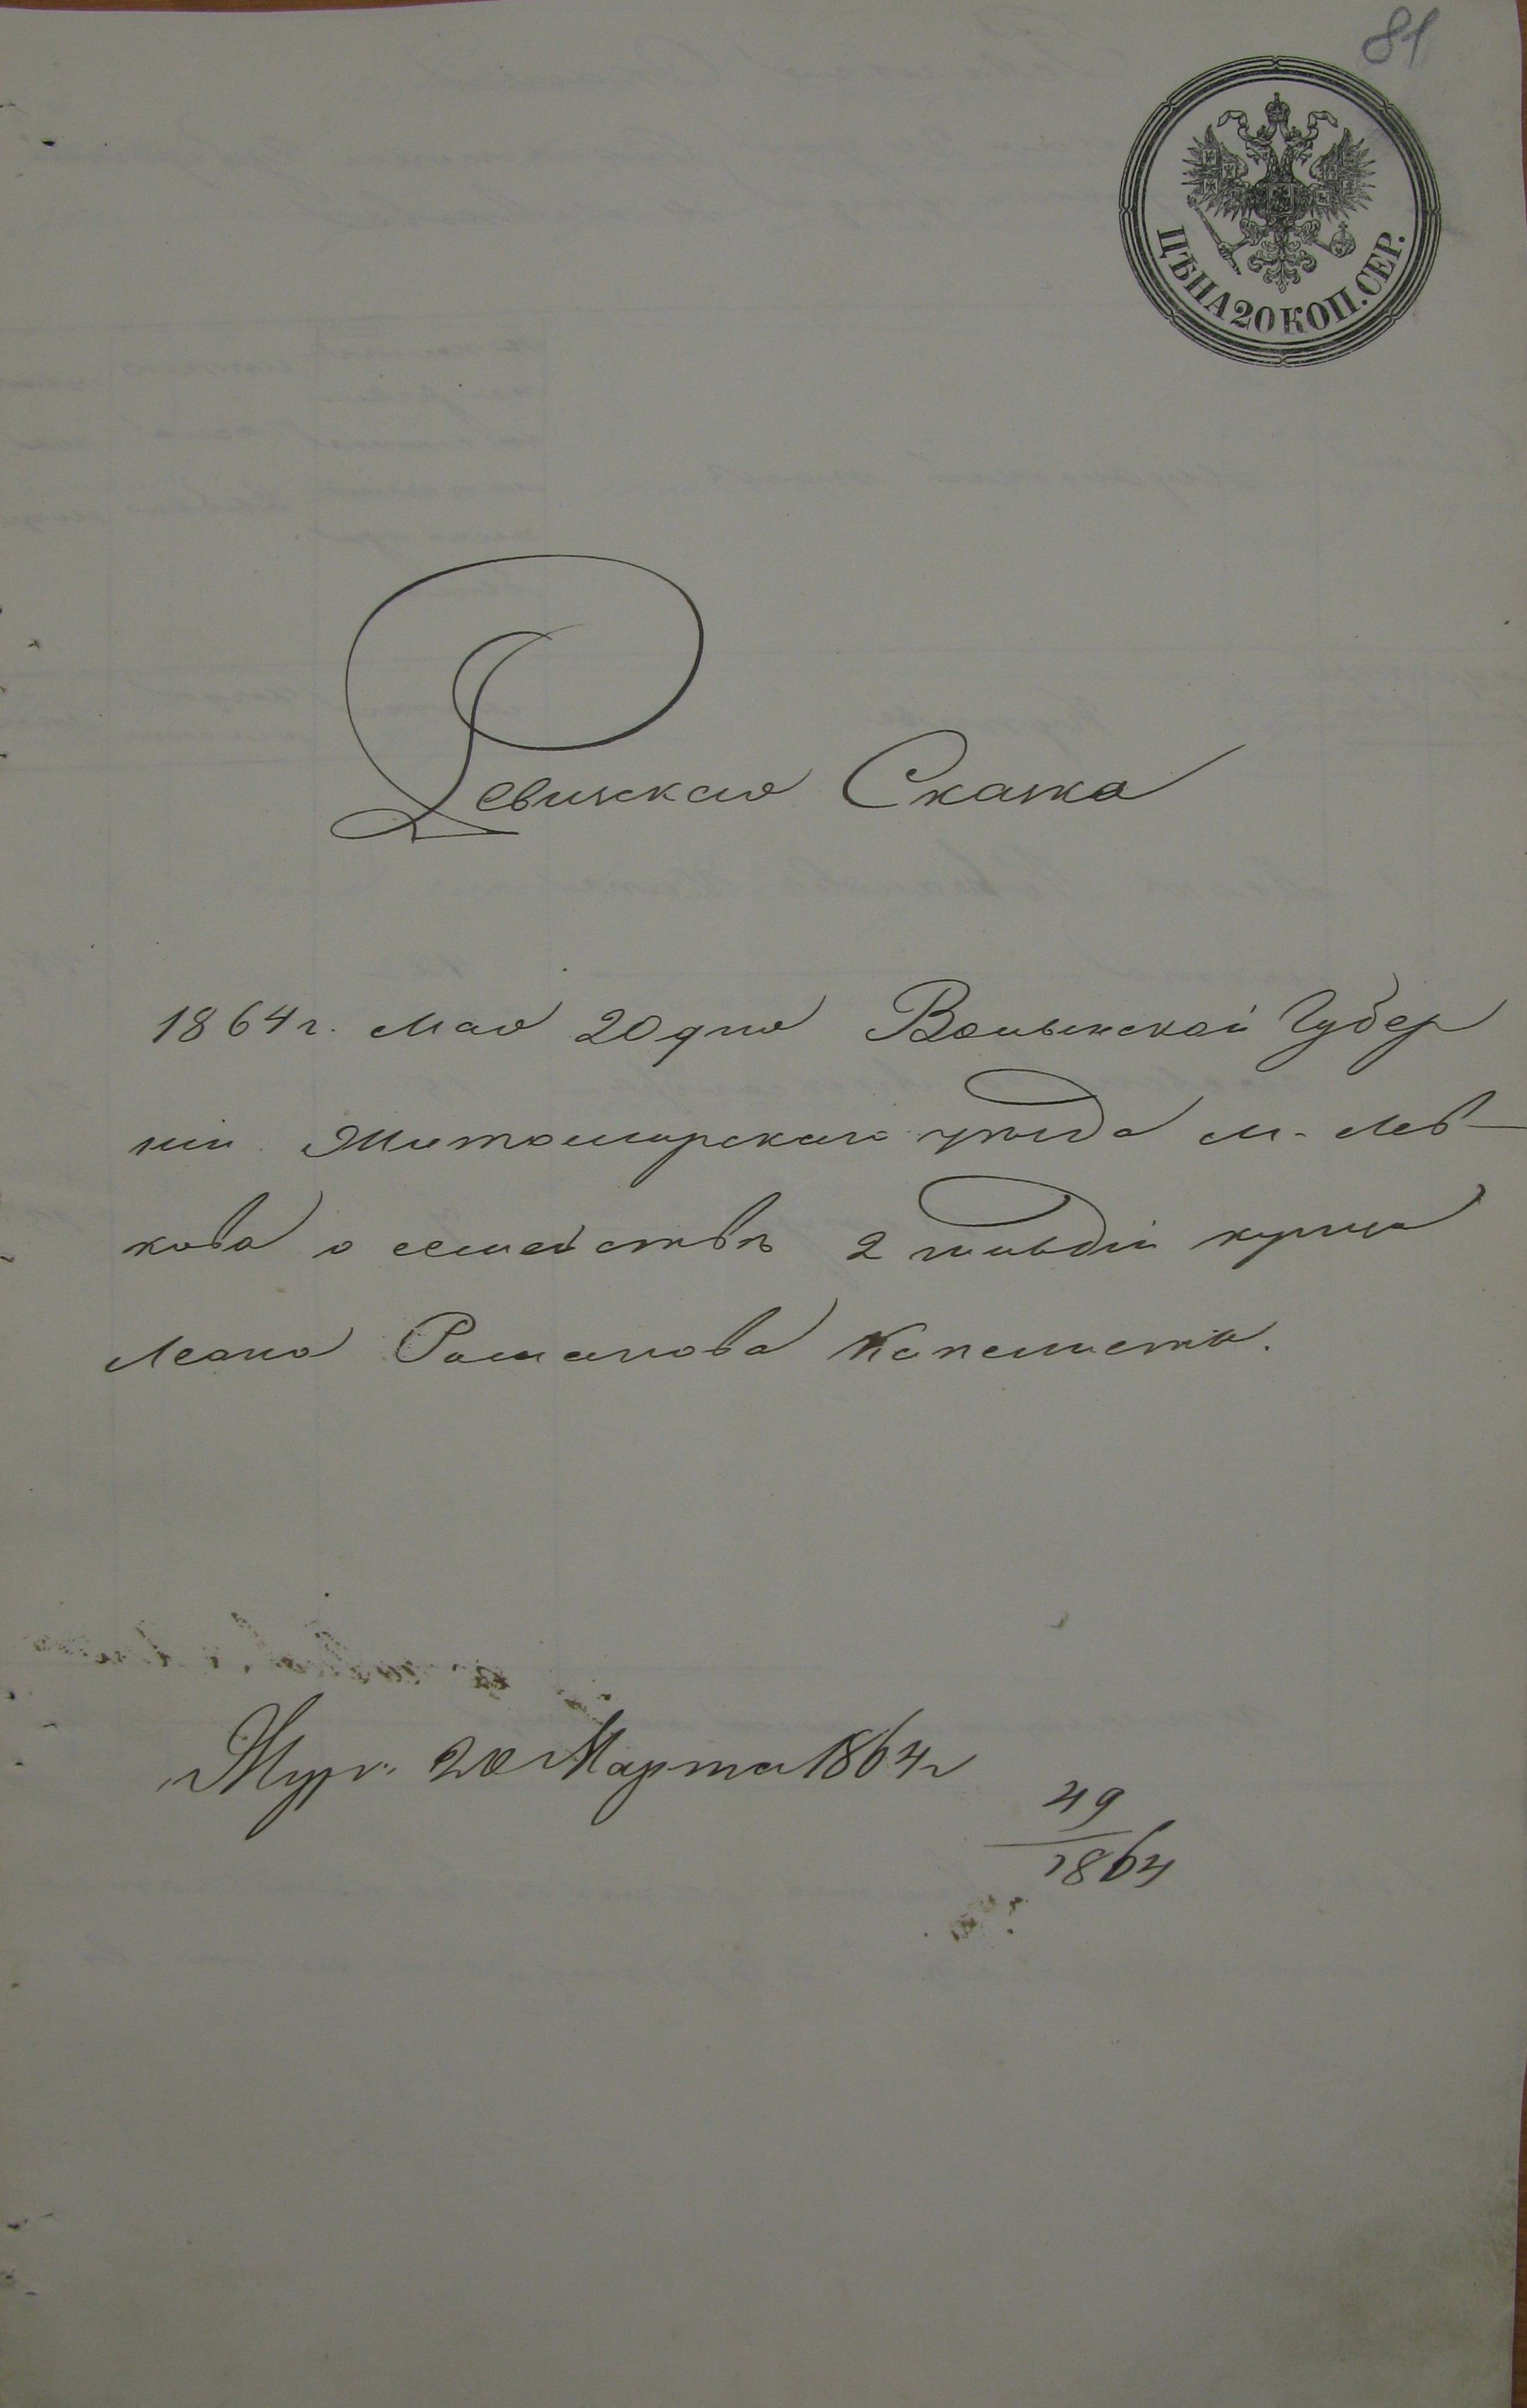 81
ЦѢНА 20 КОП. СЕР.
Ревижская Скажа
1864 г. Мая 20 дня Волынской Губер
ніи Житомирскаго уѣзда м. Лев-
кова о семействѣ 2 гильдіи купца
Леона Романова
Жур. 20 Марта 1864 г
49
1864